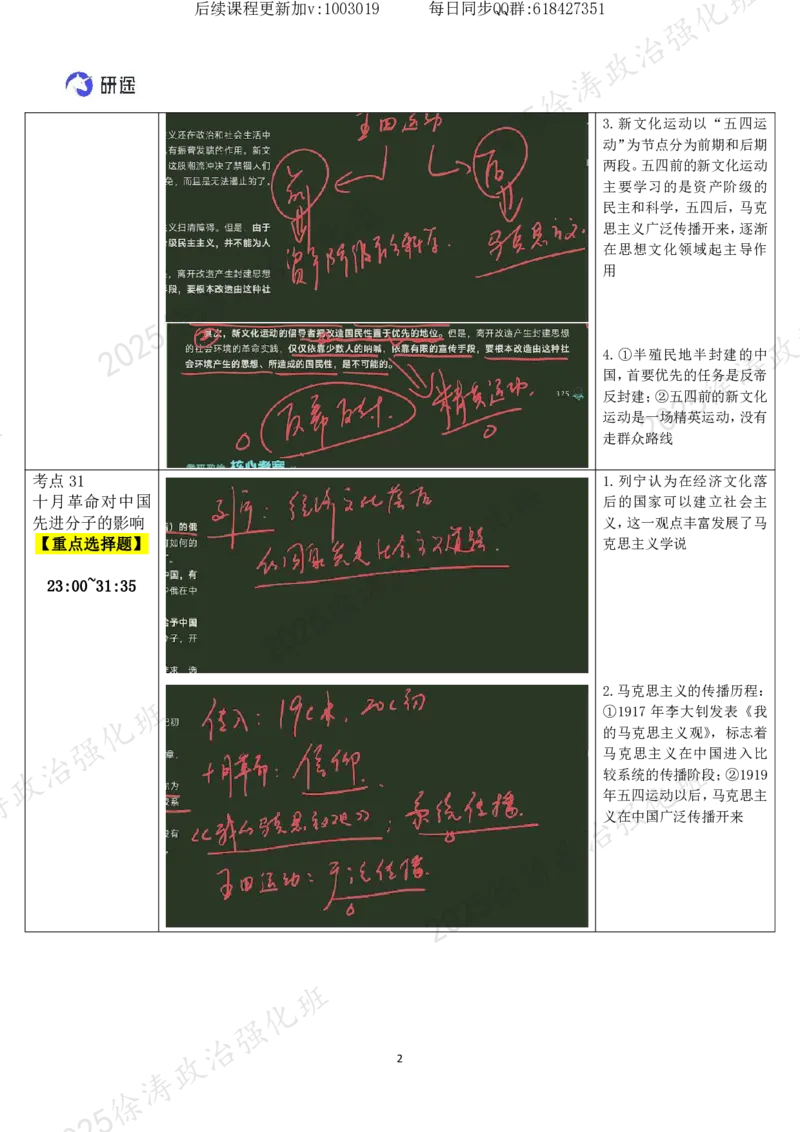 后续课程更新加v:1003019 每日同步QQ群:618427351
研途
义还在政治和社会生活中
有振聋发聩的作用。新文
这股潮流冲决了禁锢人们
免，而且是无法遏止的了。
义扫清障碍。但是，由于
级民主主义，并不能为人
，离开改造产生封建思想
段，要根本改造由这种社
五四运动
前
后
资产阶级民主科学.
马克思主义.
3.新文化运动以“五四运
动”为节点分为前期和后期
两段。五四前的新文化运动
主要学习的是资产阶级的
民主和科学，五四后，马克
思主义广泛传播开来，逐渐
在思想文化领域起主导作
用
其次，新文化运动的倡导者把改造国民性置于优先的地位。但是，离开改造产生封建思想
的社会环境的革命实践，仅仅依靠少数人的呐喊，依靠有限的宣传手段，要根本改造由这种社
会环境产生的思想、所造成的国民性，是不可能的。
反帝反封.
精英运动.
175
考研政治 核心考案
4.①半殖民地半封建的中
国，首要优先的任务是反帝
反封建；②五四前的新文化
运动是一场精英运动，没有
走群众路线
考点 31
十月革命对中国
先进分子的影响
【重点选择题】
23:00~31:35
）的俄
如何的
国，有
俄在中
给予中国
子，开
求，选
列宁：经济文化落后
的国家走社会主义道路.
1.列宁认为在经济文化落
后的国家可以建立社会主
义，这一观点丰富发展了马
克思主义学说
传入：19c末，20c初
十月革命：信仰.
《我的马克思主义观》；系统传播.
五四运动：广泛传播.
2.马克思主义的传播历程：
①1917 年李大钊发表《我
的马克思主义观》，标志着
马克思主义在中国进入比
较系统的传播阶段；②1919
年五四运动以后，马克思主
义在中国广泛传播开来
2025徐涛政治强化班
2